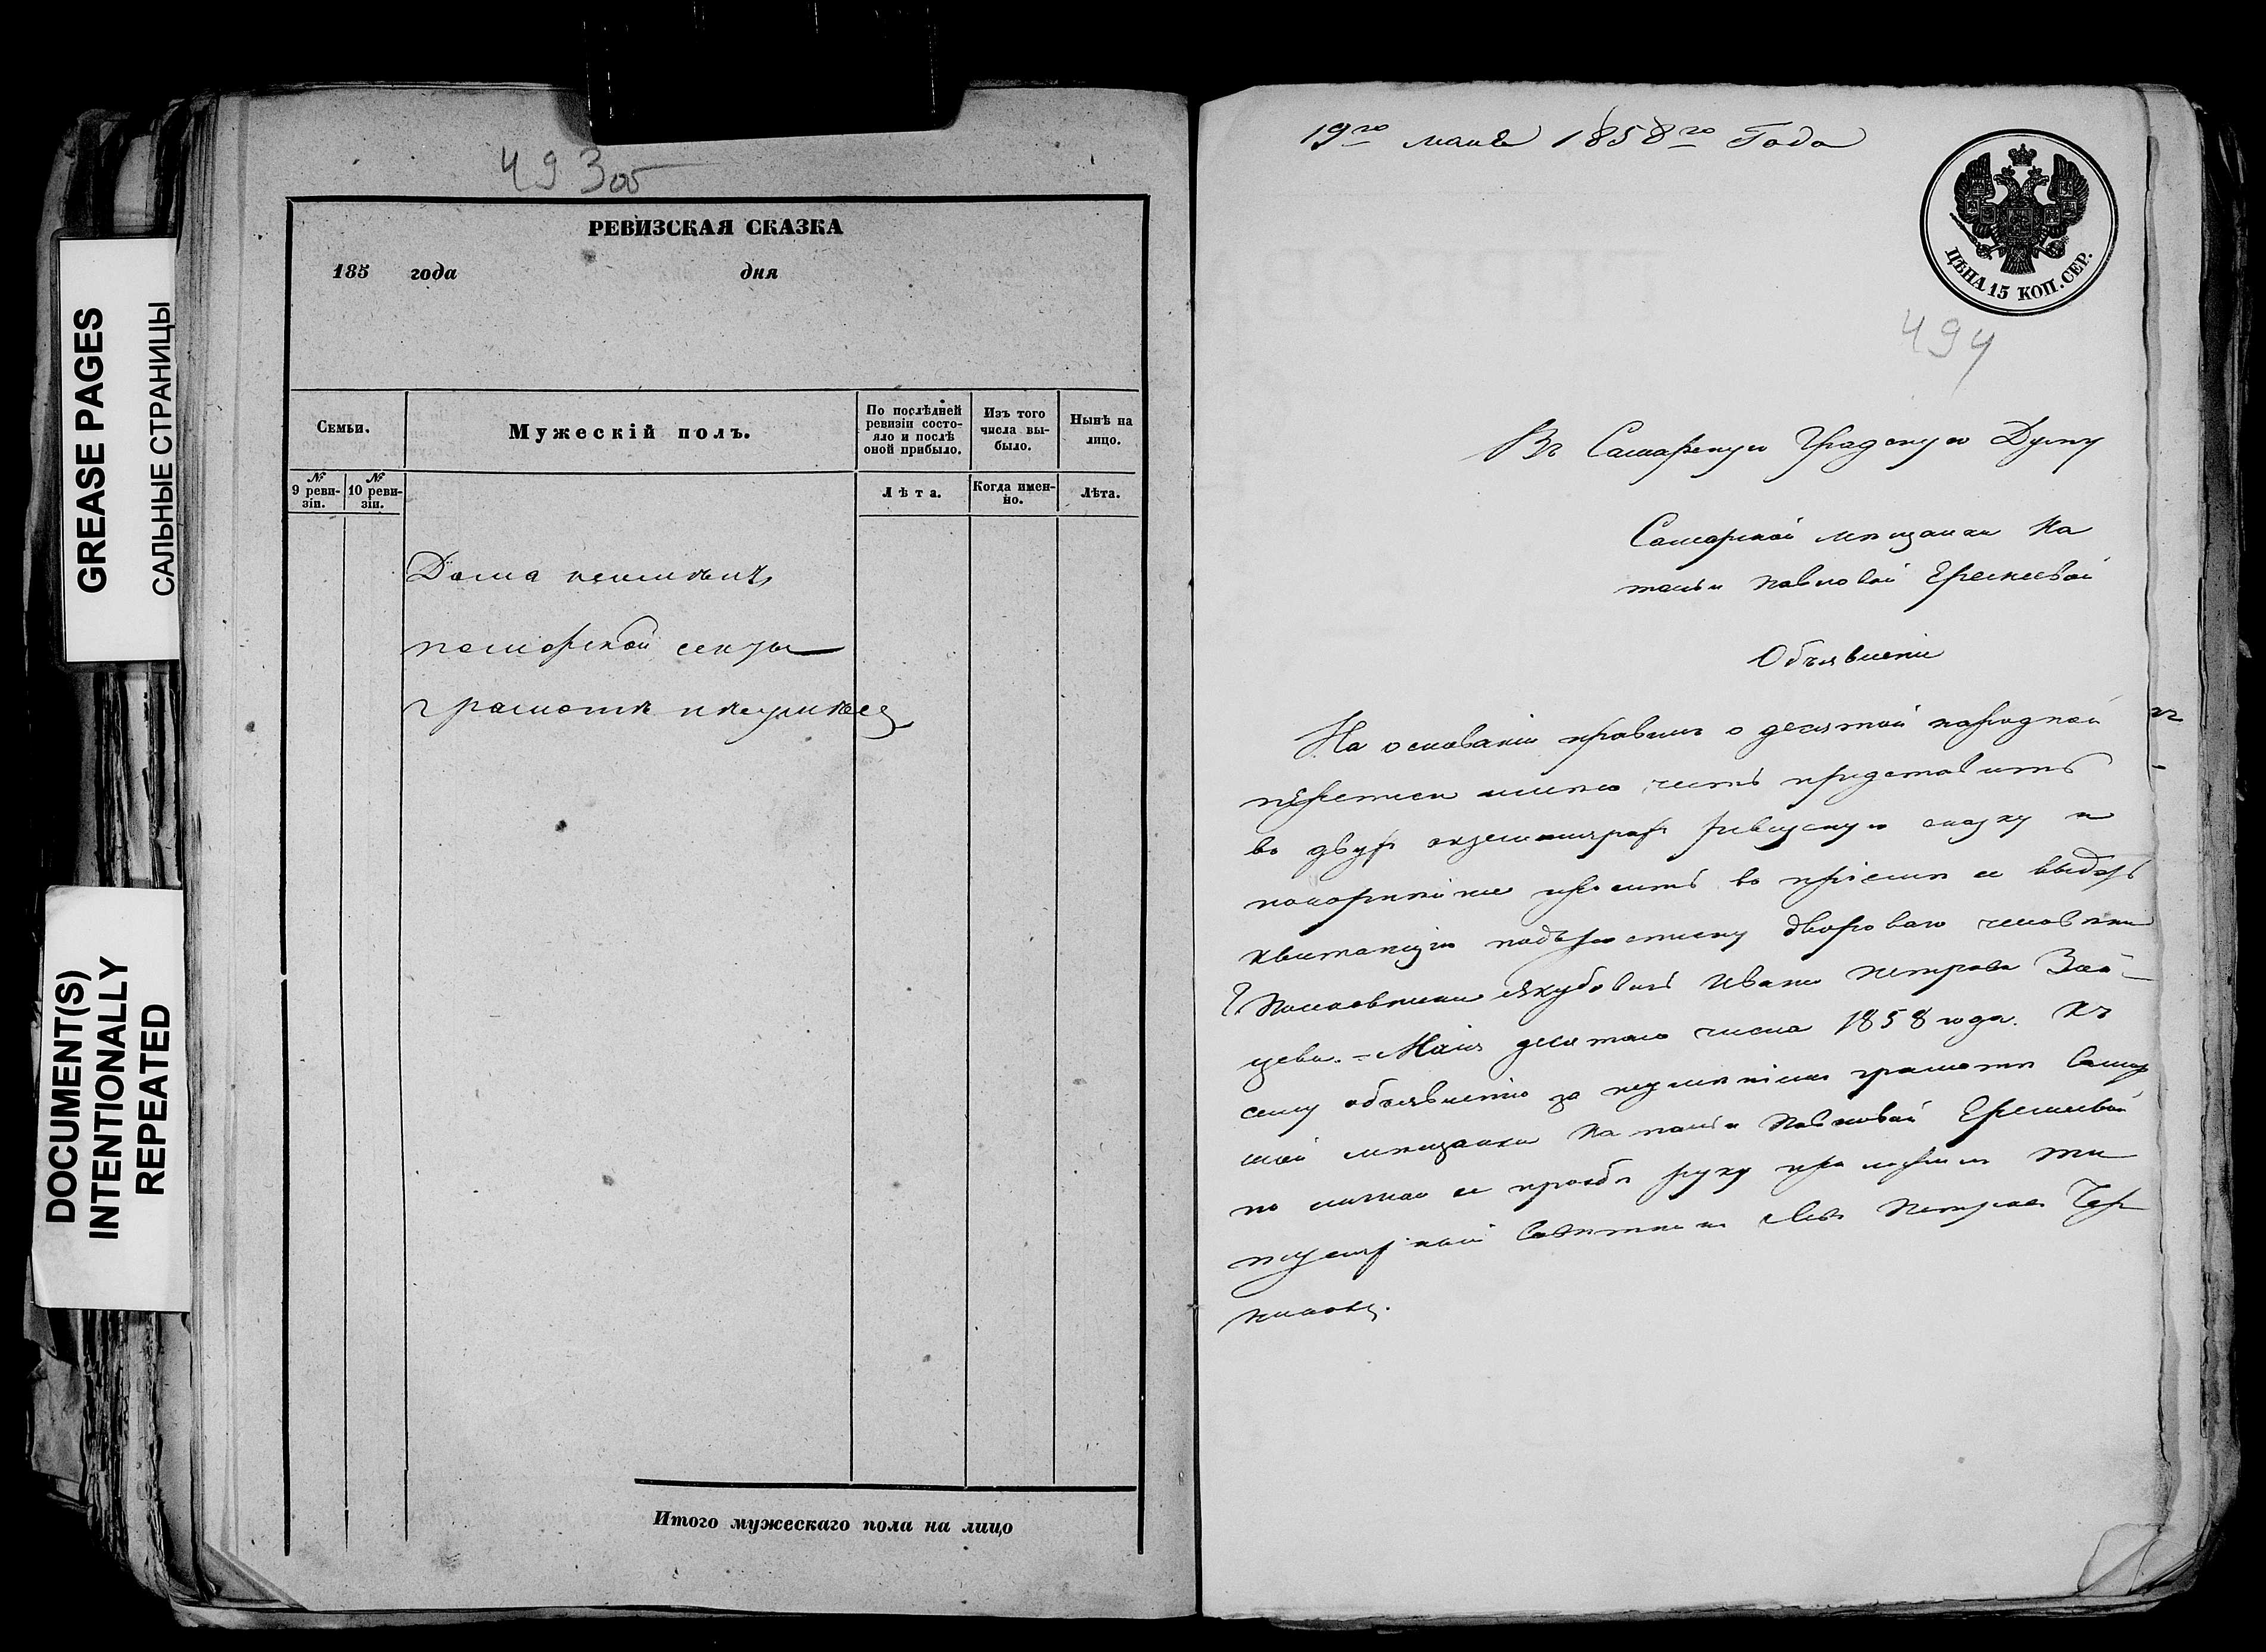 GREASE PAGES
САЛЬНЫЕ СТРАНИЦЫ
DOCUMENT(S)
INTENTIONALLY
REPEATED
493об
РЕВИЗСКАЯ СКАЗКА
185 года дня
Семьи.
Мужескій полъ.
По послѣдней
ревизіи состо-
яло и послѣ
оной прибыло.
Изъ того
числа вы-
было.
Нынѣ на
лицо.
№
9 реви-
зіи.
№
10 реви-
зіи.
Лѣта.
Когда имен-
но.
Лѣта.
Дома
поморской секты
грамоте
Итого мужескаго пола на лицо
19го маія 1858го Года
ЦѢНА 15 КОП. СЕР.
494
Въ Самарскую Градскую Думу
Самарской мещанки На
тальи Павловой Еремеевой
Объявленіе
На основаніи правилъ о десятой народной
переписи имею честь представить
въ двухъ экземплярахъ ревизскую сказку и
покорнейше просить въ пріеме ее выдать
квитанцію дворовому человеку
Якубовичъ Ивану Петрову Зай-
цеву. - Маія десятаго числа 1858 года. Къ
сему объявленію за неуменіемъ грамоте Самар
ской мещанки Натальи Павловой Еремеевой
по личной ее прозбе руку приложилъ ти
тулярный Советникъ Петровъ Чер